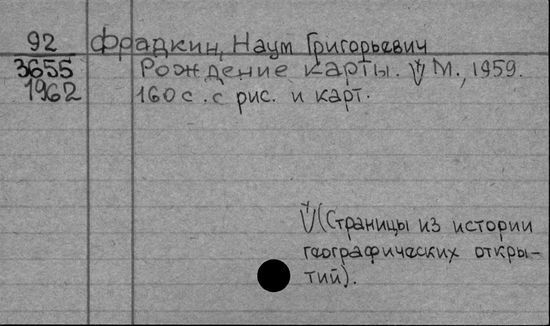 92 Фрадкин, Наум Григорьевич
3655 Рождение карты. V М., 1959.
1962 160 с. с рис. и карт.
V (Страницы из истории
географических откры-
тий).